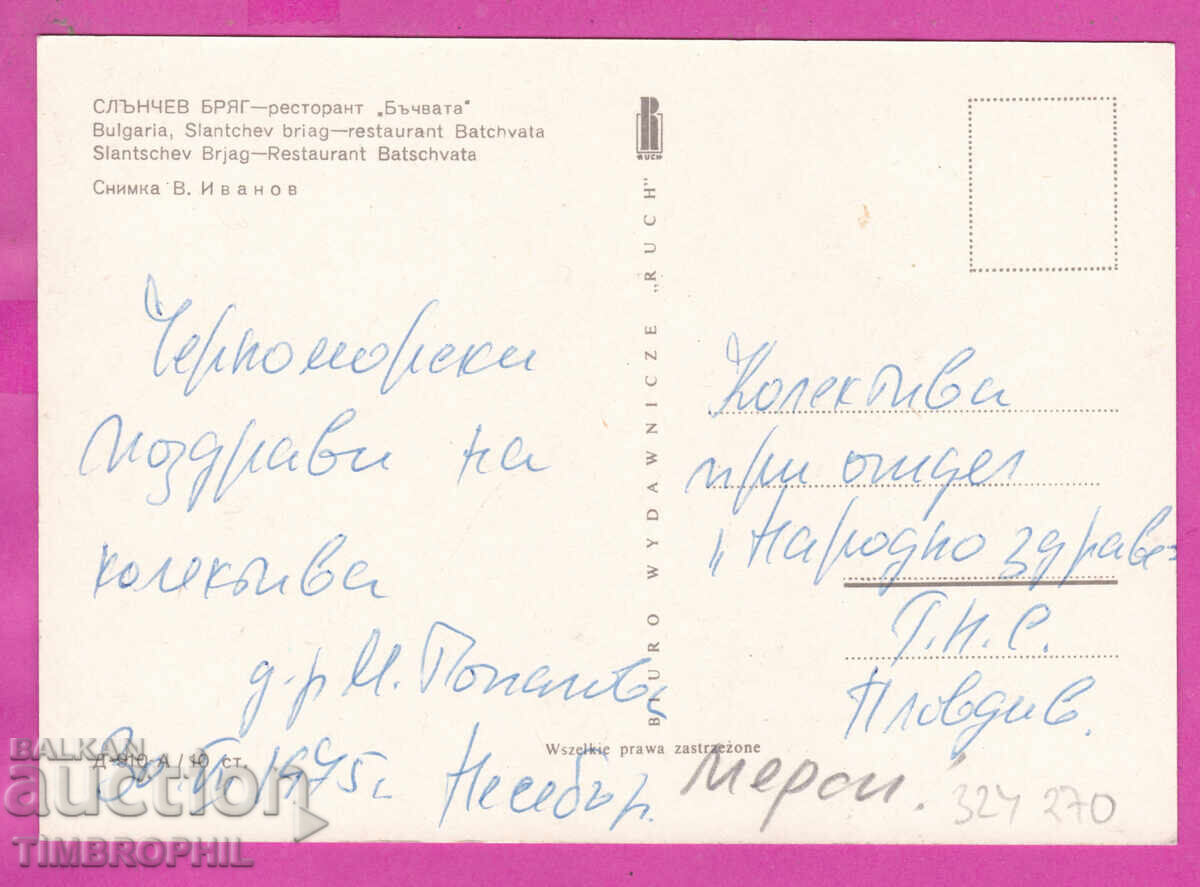 СЛЪНЧЕВ БРЯГ—ресторант „Бъчвата"
Bulgaria, Slantchev briag—restaurant Batchvata
Slantschev Brjag—Restaurant Batschvata
Снимка В. Иванов
RUCH
BIURO WYDAWNICZE „RUCH"
Черноморски
поздрави на
колектива
д-р М.
30.VI.1975 г. Несебър.
Колектива
при отдел
„Народно здраве"
Г.Н.С.
Пловдив.
Мерси!
324 270
Д-910-А / 10 ст.
Wszelkie prawa zastrzeżone
BALKAN
auction
TIMBROPHIL